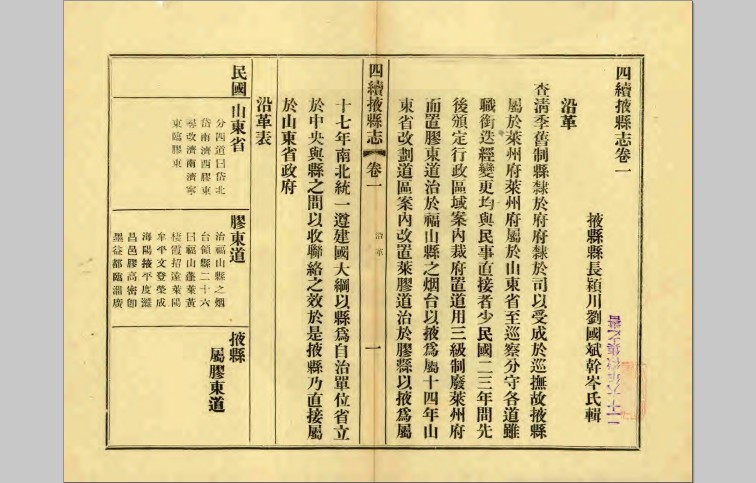 四續掖縣志卷一
掖縣縣長潁川劉國斌幹岑氏輯
沿革
查清季舊制縣隸於府府隸於司以受成於巡撫故掖縣
屬於萊州府萊州府屬於山東省至巡察分守各道雖
職銜迭經變更均與民事直接者少民國二三年間先
後頒定行政區域案內裁府置道用三級制廢萊州府
而置膠東道治於福山縣之烟台以掖爲屬十四年山
東省改劃道區案內改置萊膠道治於膠縣以掖爲屬
四續掖縣志 卷一 沿革 一
十七年南北統一遵建國大綱以縣爲自治單位省立
於中央與縣之間以收聯絡之效於是掖縣乃直接屬
於山東省政府
沿革表
民國
山東省
分四道曰岱北
岱南濟西膠東
尋改濟南濟寧
東臨膠東
膠東道
治福山縣之烟
台領縣二十六
曰福山蓬萊黃
棲霞招遠萊陽
牟平文登榮成
海陽掖平度濰
昌邑膠高密卽
墨益都臨淄廣
掖縣
屬膠東道